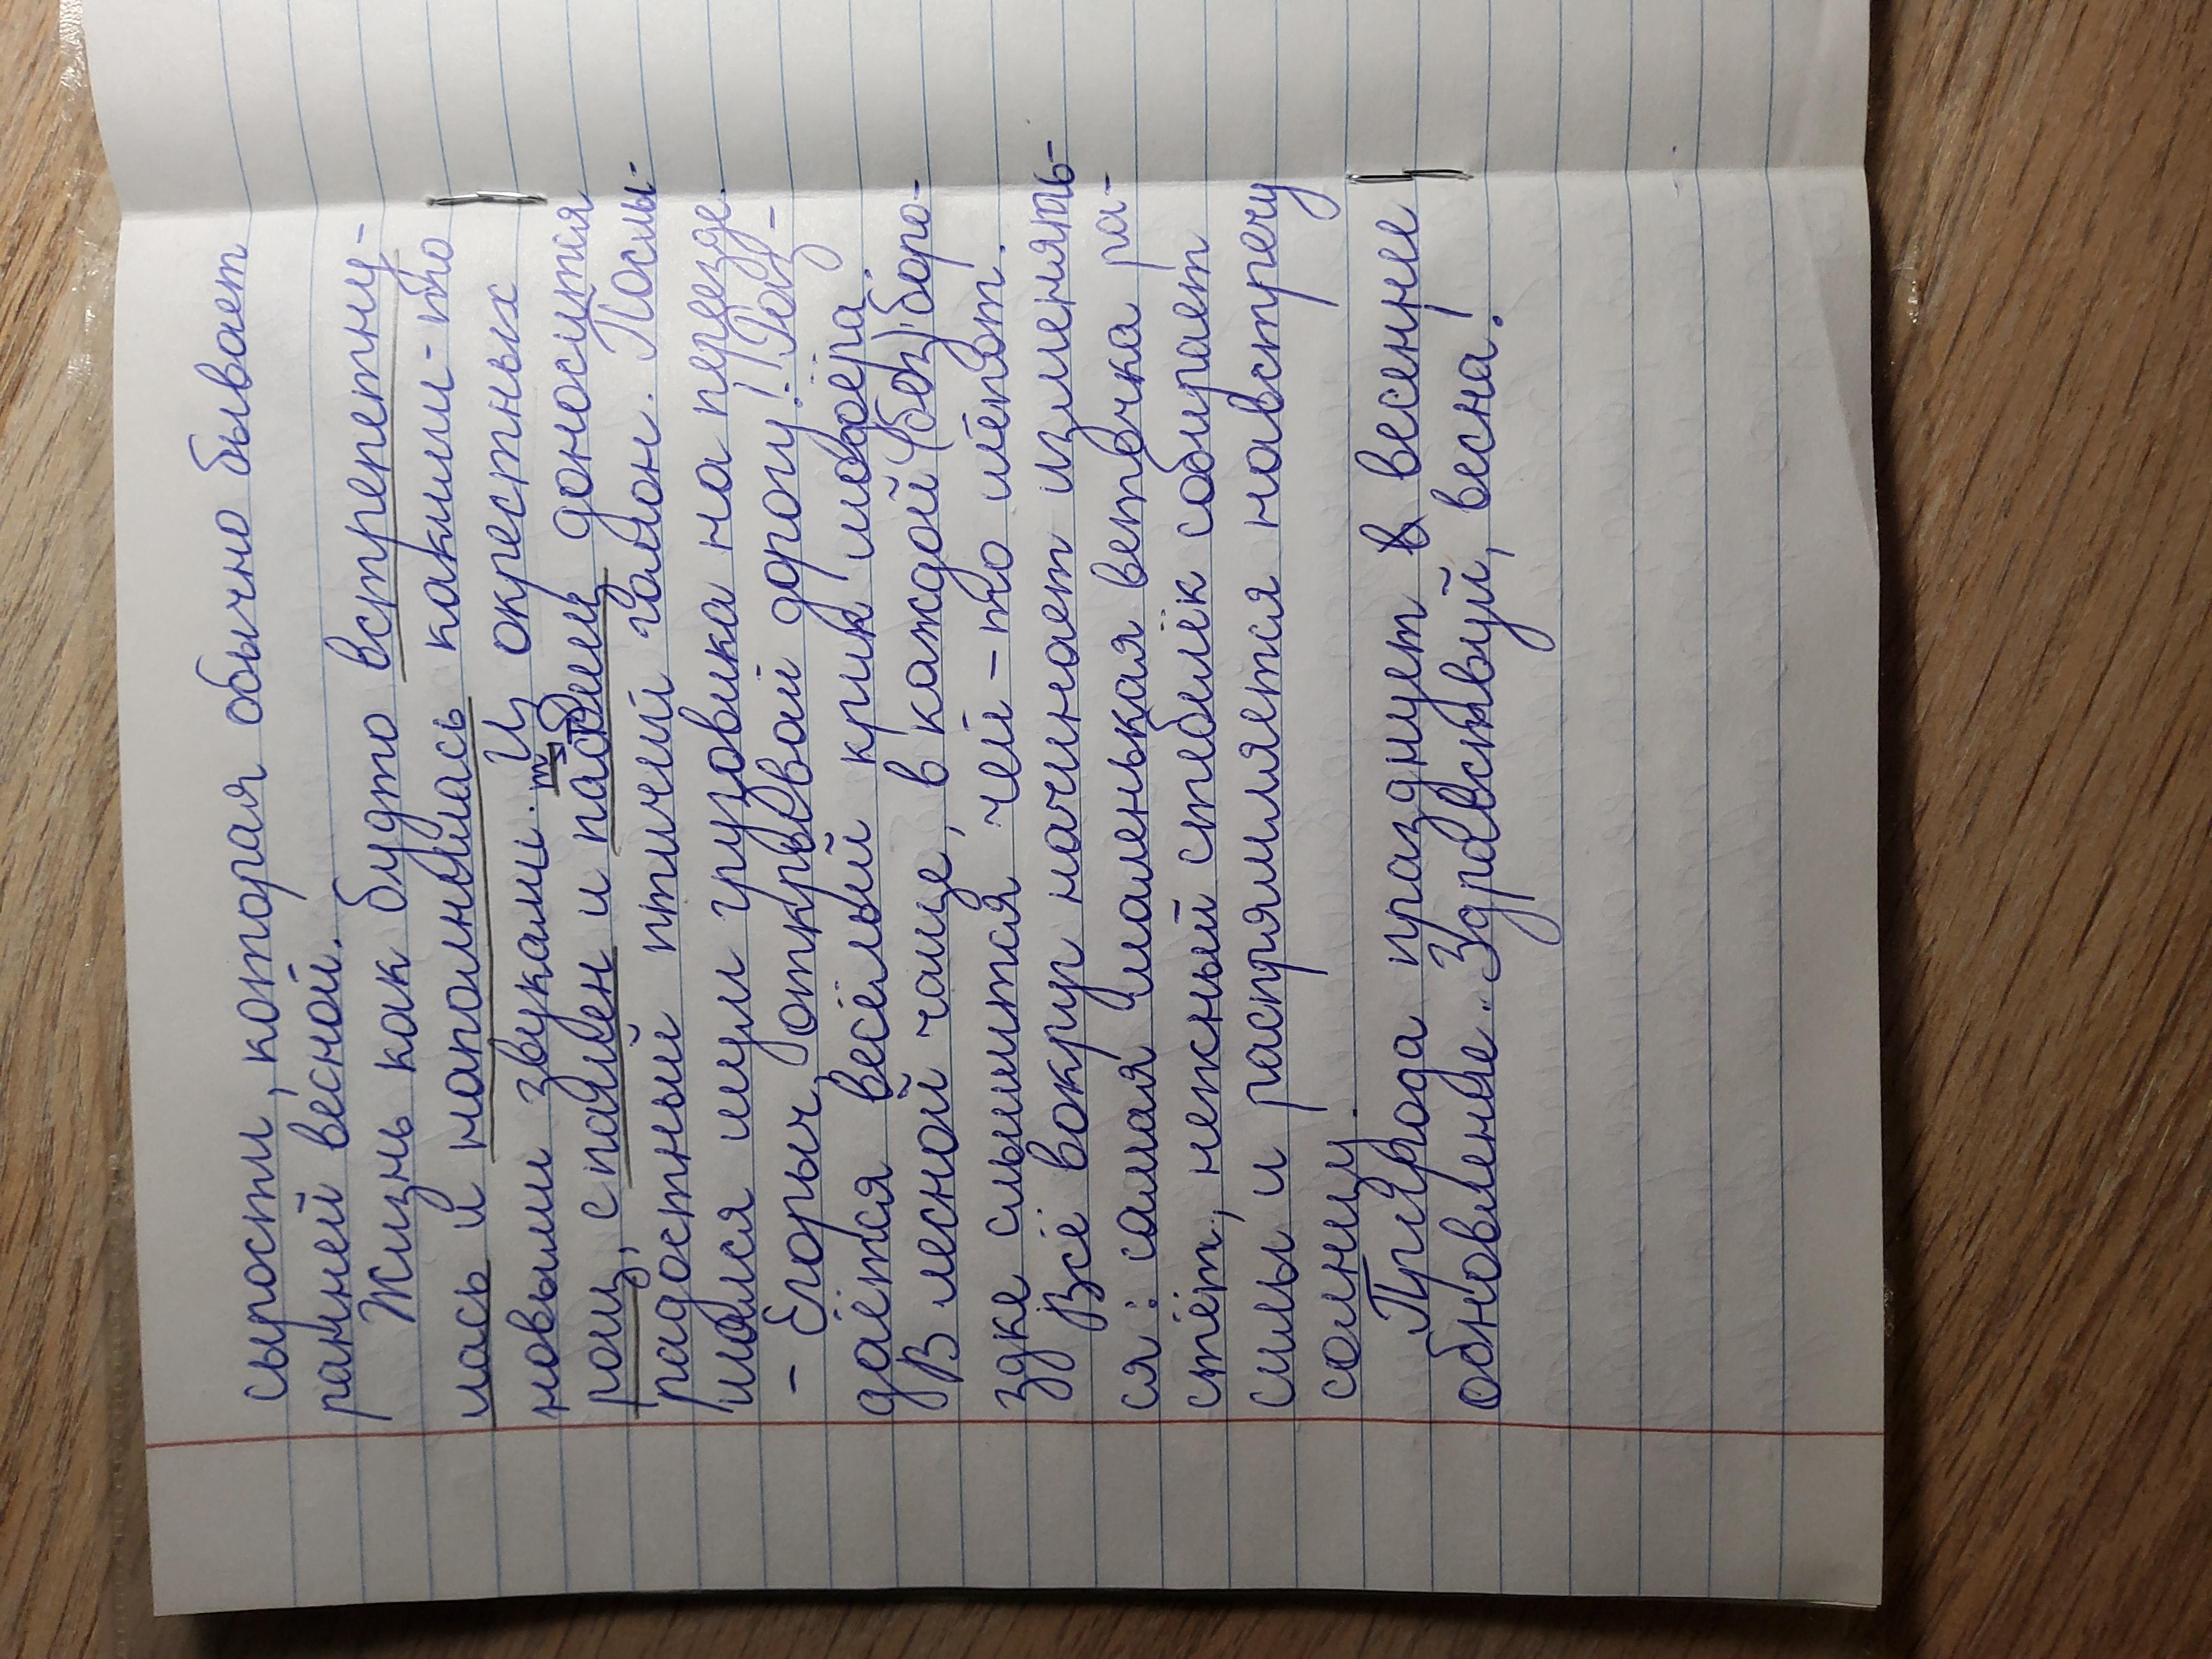 сырости, которая обычно бывает
ранней весной.
Жизнь как будто встрепетну-
лась и наполнилась какими-то
новыми звуками. И окрестных
рощ, с полян и пастбищ доносится
радостный птичий гомон. Послы-
шался шум грузовика на переезде.
- Егорыч, открывай дорогу! Раз-
даётся весёлый крик шофёра.
В лесной чаще, в каждой боро-
здке слышится чей-то шёпот.
Всё вокруг начинает изменять-
ся: самая маленькая веточка ра-
стёт, нежный стебелёк собирает
силы и распрямляется навстречу
солнцу.
Природа празднует в весеннее
обновление. Здравствуй, весна!